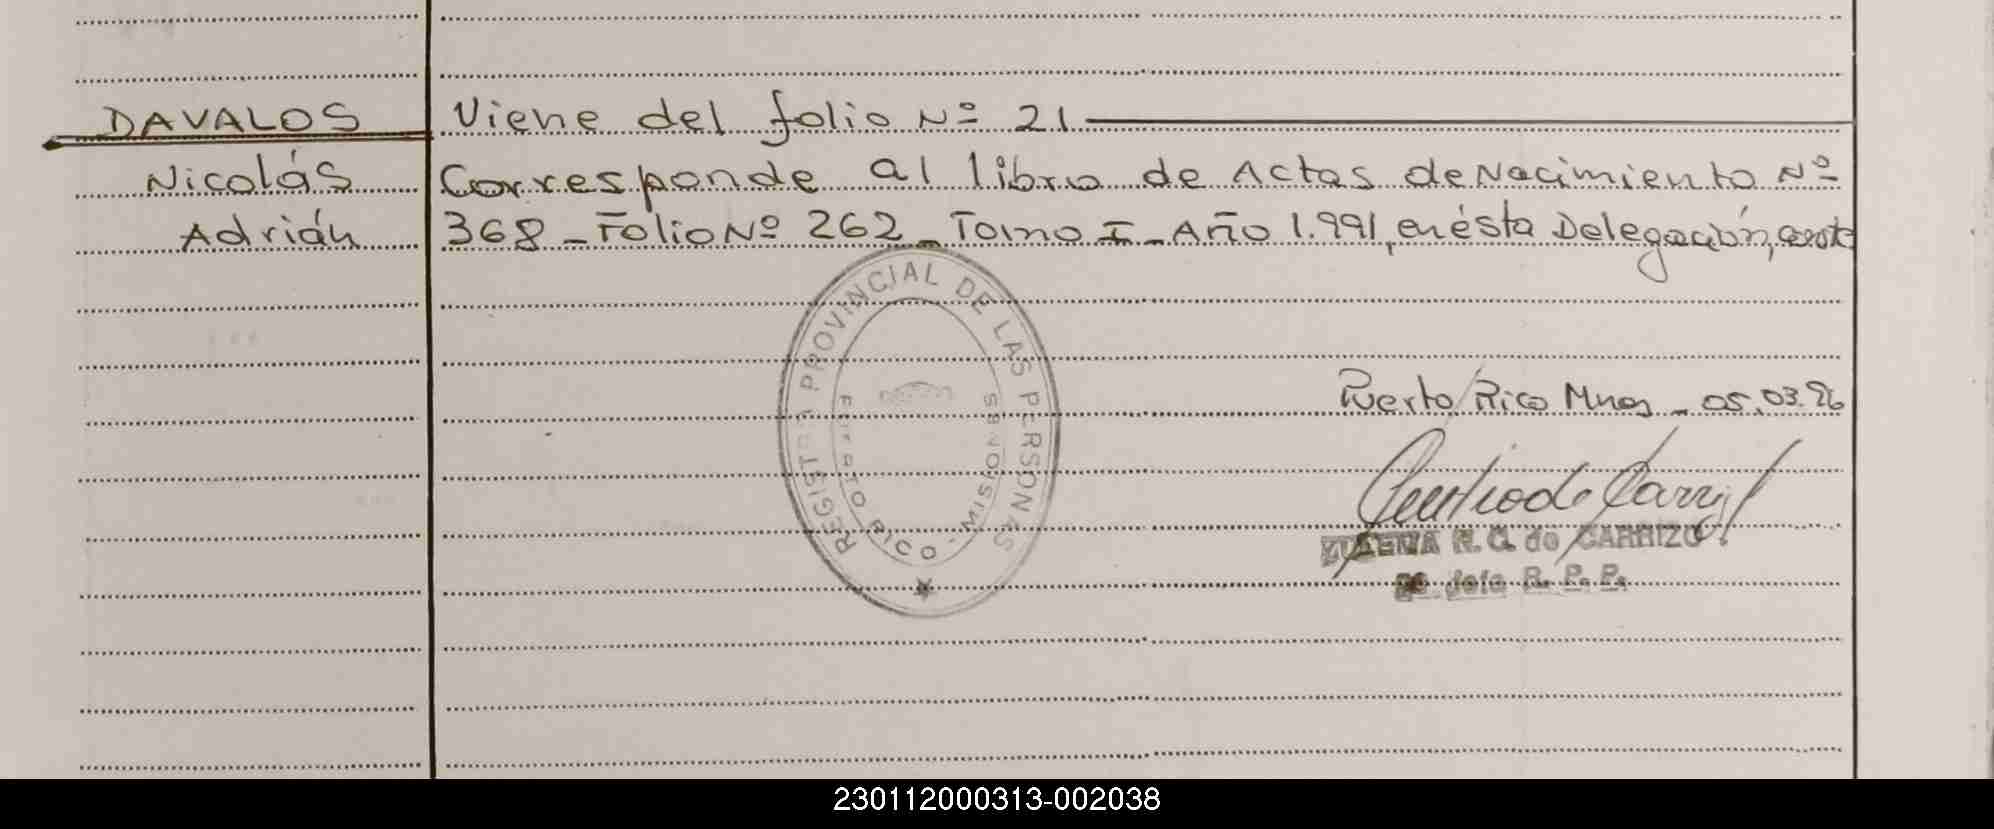 DAVALOS Viene del folio Nº 21
Nicolás Corresponde al libro de Actas de Nacimiento Nº
Adrián 368 - Folio Nº 262 - Tomo I - Año 1.991, en ésta Delegación,
REGISTRO PROVINCIAL DE LAS PERSONAS
PUERTO RICO - MISIONES
Puerto Rico Mnes - 05.03.96
N. G. de CARRIZO
2º Jefe R. P. P.
230112000313-002038